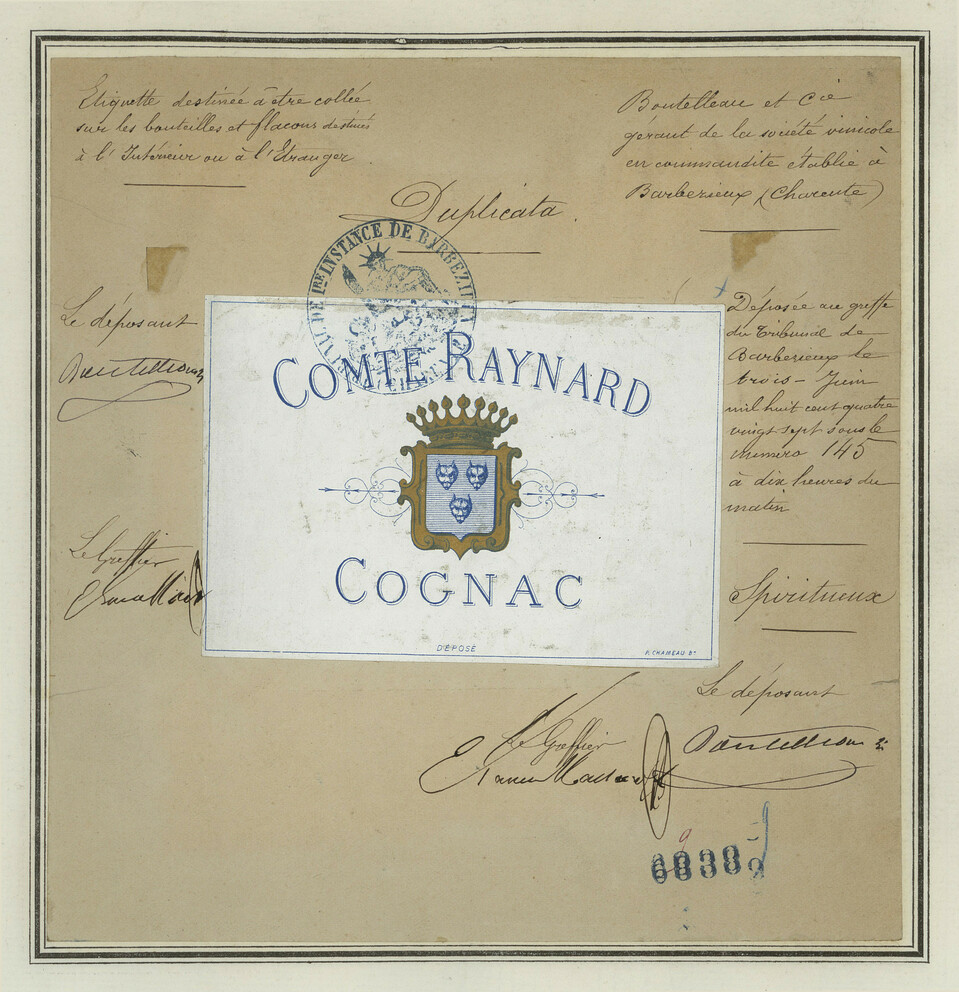 Etiquette destinée à être collée
sur les bouteilles et flacons destinés
à l'Intérieur ou à l'Etranger
Boutelleau et Cie
gérant de la société vinicole
en commandite établie à
Barbezieux (Charente)
Duplicata.
INSTANCE DE BARBEZIEUX
Le déposant
Boutelleau
COMTE RAYNARD
COGNAC
DÉPOSÉ
Déposée au greffe
du Tribunal de
Barbezieux le
trois - Juin
mil huit cent quatre
vingt sept sous le
numéro 145
à dix heures du
matin
Le Greffier
Spiritueux
Le déposant
Boutelleau
Le Greffier